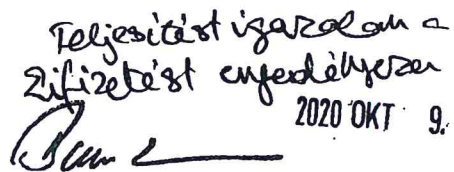 Teljesítést igazolom a
kifizetést engedélyezem
2020 OKT 9.